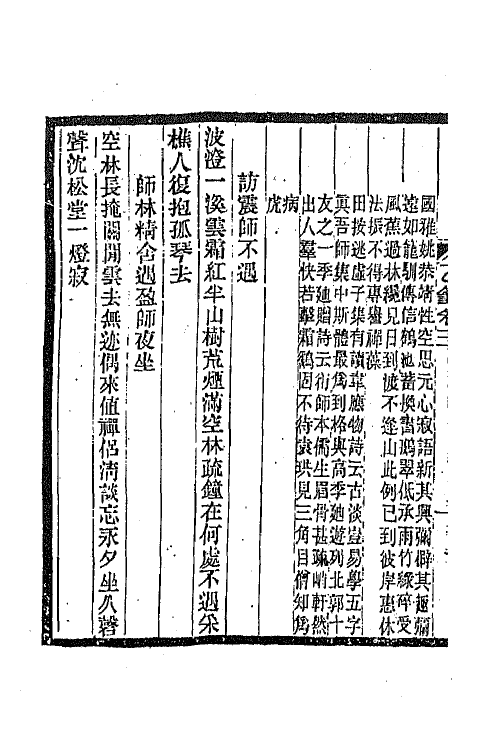 國雅姚恭靖性空思元心寂語新其興彌僻其趣彌
遠如龍馴傳信鶴池舊換書鵝翠低承雨竹綠碎受
風蕉過林纔見日到嶺不逢山此例已到彼岸惠休
法振不得專壚禪藻
田按逃虛子集有讀韋應物詩云古淡豈易學五字
眞吾師集中斯體最爲到格與高季廸遊列北郭十
友之一季廸贈詩云衍師本儒生眉骨甚疎峭軒然
出人羣快若擊霜鷂固不待袁珙見三角目僧知爲
病虎
訪震師不遇
波澄一溪雲霜紅半山樹荒煙滿空林疏鐘在何處不遇采
樵人復抱孤琴去
師林精舍遇盈師夜坐
空林長掩關閒雲去無迹偶來值禪侶清談忘永夕坐久磬
聲沈松堂一燈寂